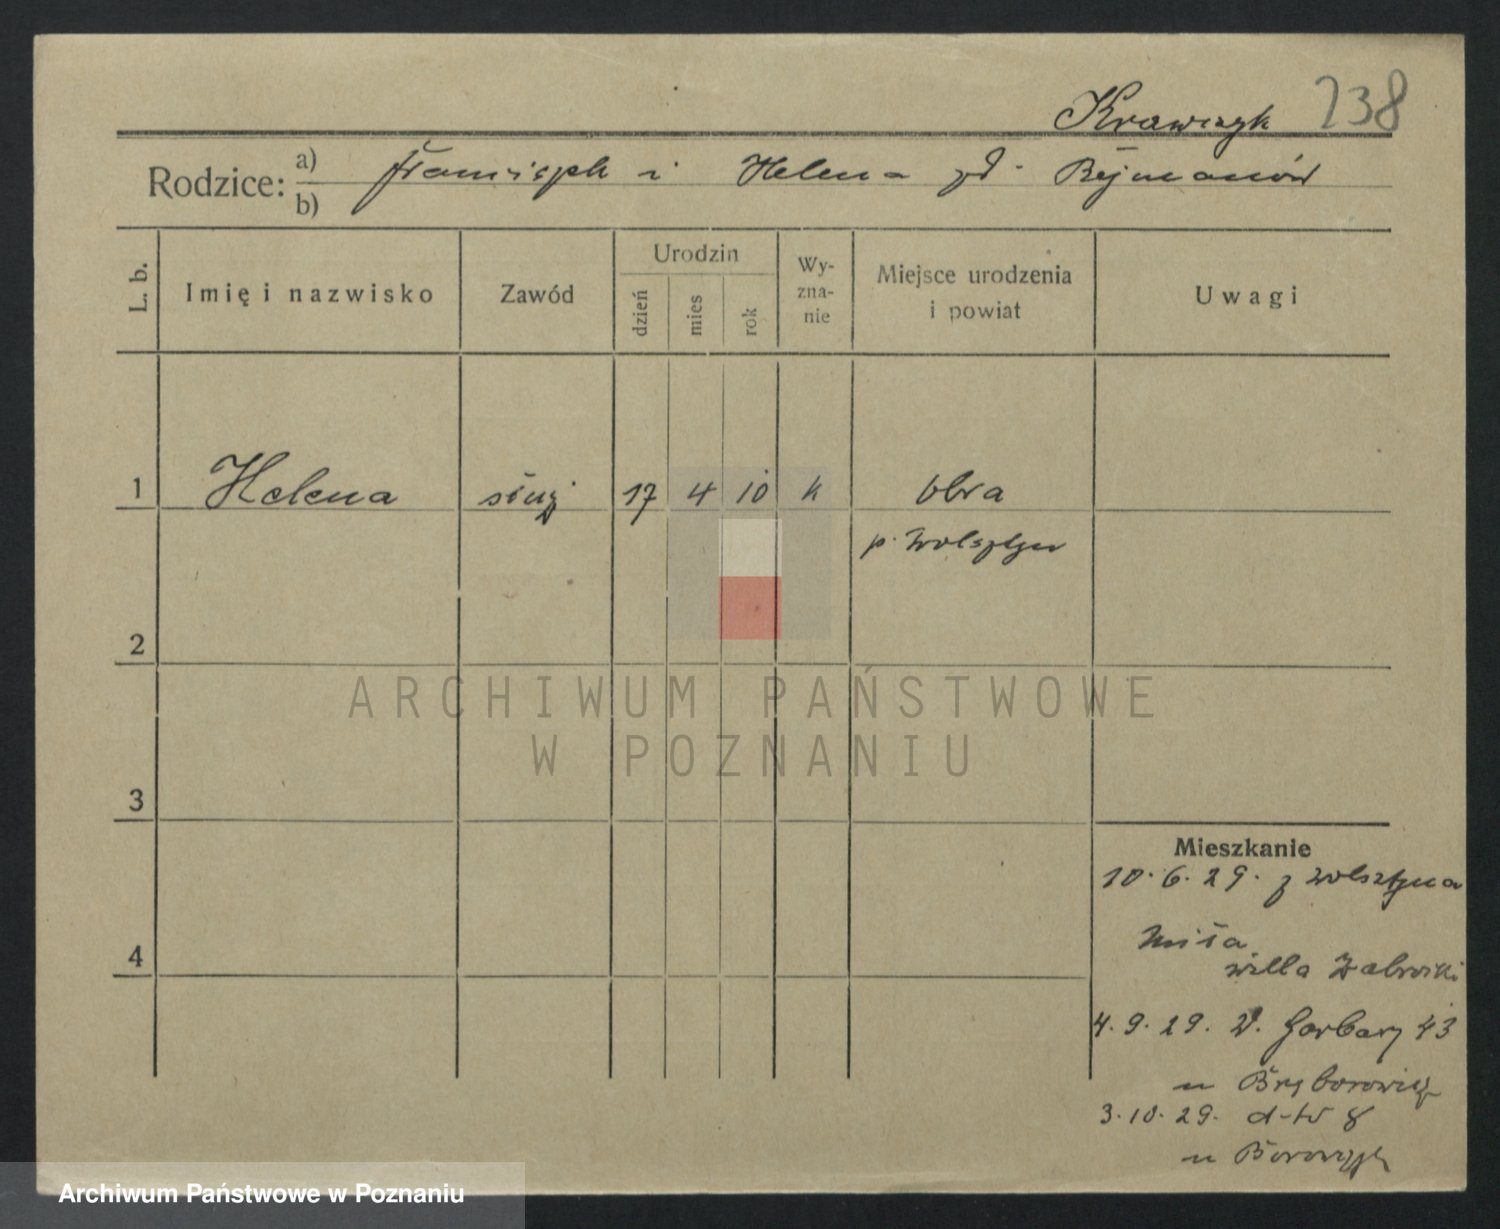 Krawczyk 238
Rodzice: a) Franciszek i Helena zd.
b)
L. b. Imię i nazwisko Zawód Urodzin dzień mies rok Wy-zna-nie Miejsce urodzenia i powiat Uwagi
1 Helena służ 17 4 10 k Obra
p. Wolsztyn
2
ARCHIWUM PAŃSTWOWE
W POZNANIU
3
Mieszkanie
10.6.29. z Wolsztyna
4
willa
4.9.29. Garbary 43
u
3.10.29. 8
u
Archiwum Państwowe w Poznaniu